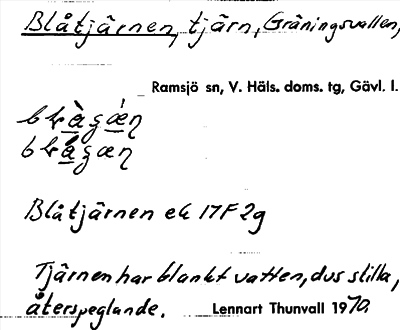 Blåtjärnen, tjärn, Gräningsvallen,
Ramsjö sn, V. Häls. doms. tg, Gävl. l.
Blåtjärnen ek 17F 2g
Tjärnen har blankt vatten, dvs stilla,
återspeglande. Lennart Thunvall 1970.